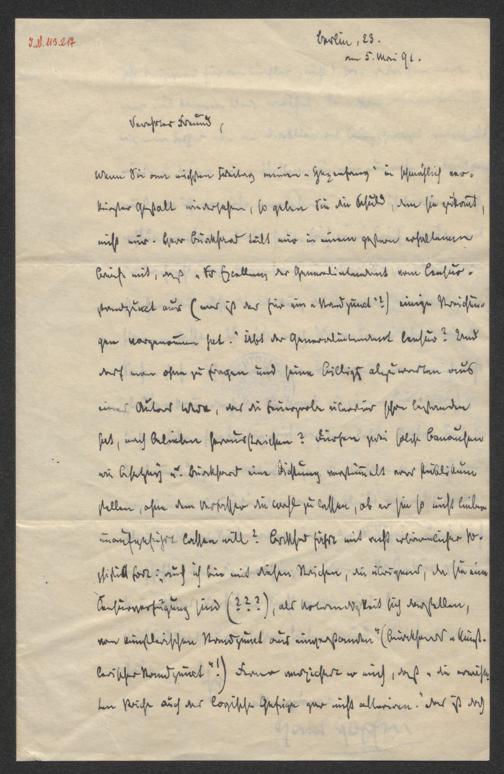 I.N. 113.217
Berlin, 23.
am 5. Mai 91.
Verehrter Freund,
Wenn Sie am nächsten Freitag meinen „Hexenfang“ in schmählich ver-
kürzter Gestalt wiedersehen, so geben Sie die Schuld, dem sie zukommt,
nicht mir. Herr Burckhard teilt mir in einem gestern erhaltenen
Briefe mit, daß „Se Excellenz der Generalintendant vom Censur-
standpunkt aus (was ist das für ein „Standpunkt“?) einige Streichun-
gen vorgenommen hat.“ Übt der Generalintendant Censur? Und
darf man ohne zu fragen und seine Billigg abzuwarten aus
eines Autors Werk, das die Feuerprobe überdies schon bestanden
hat, nach Belieben herausstreichen? Dürfen zwei solche Banausen
wie Bezecny u. Burckhard eine Dichtung verstümmelt vors Publikum
stellen, ohne dem Verfasser die Wahl zu lassen, ob er sie so nicht lieber
unaufgeführt lassen will? Burckhard fährt mit recht erbärmlicher So-
phistik fort: „auch ich bin mit diesen Strichen, die übrigens, da sie eine
Censurverfügung sind (???), als Notwendigkeit sich darstellen,
vom künstlerischen Standpunkt aus einverstanden“ (Burckhards „künst-
lerischer Standpunkt“!) Ferner versichert er mich, daß „die erwähn-
ten Striche auch das logische Gefüge gar nicht alterieren.“ Das ist doch